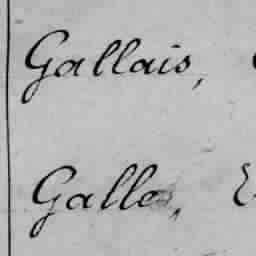 Gallais,
Galle,